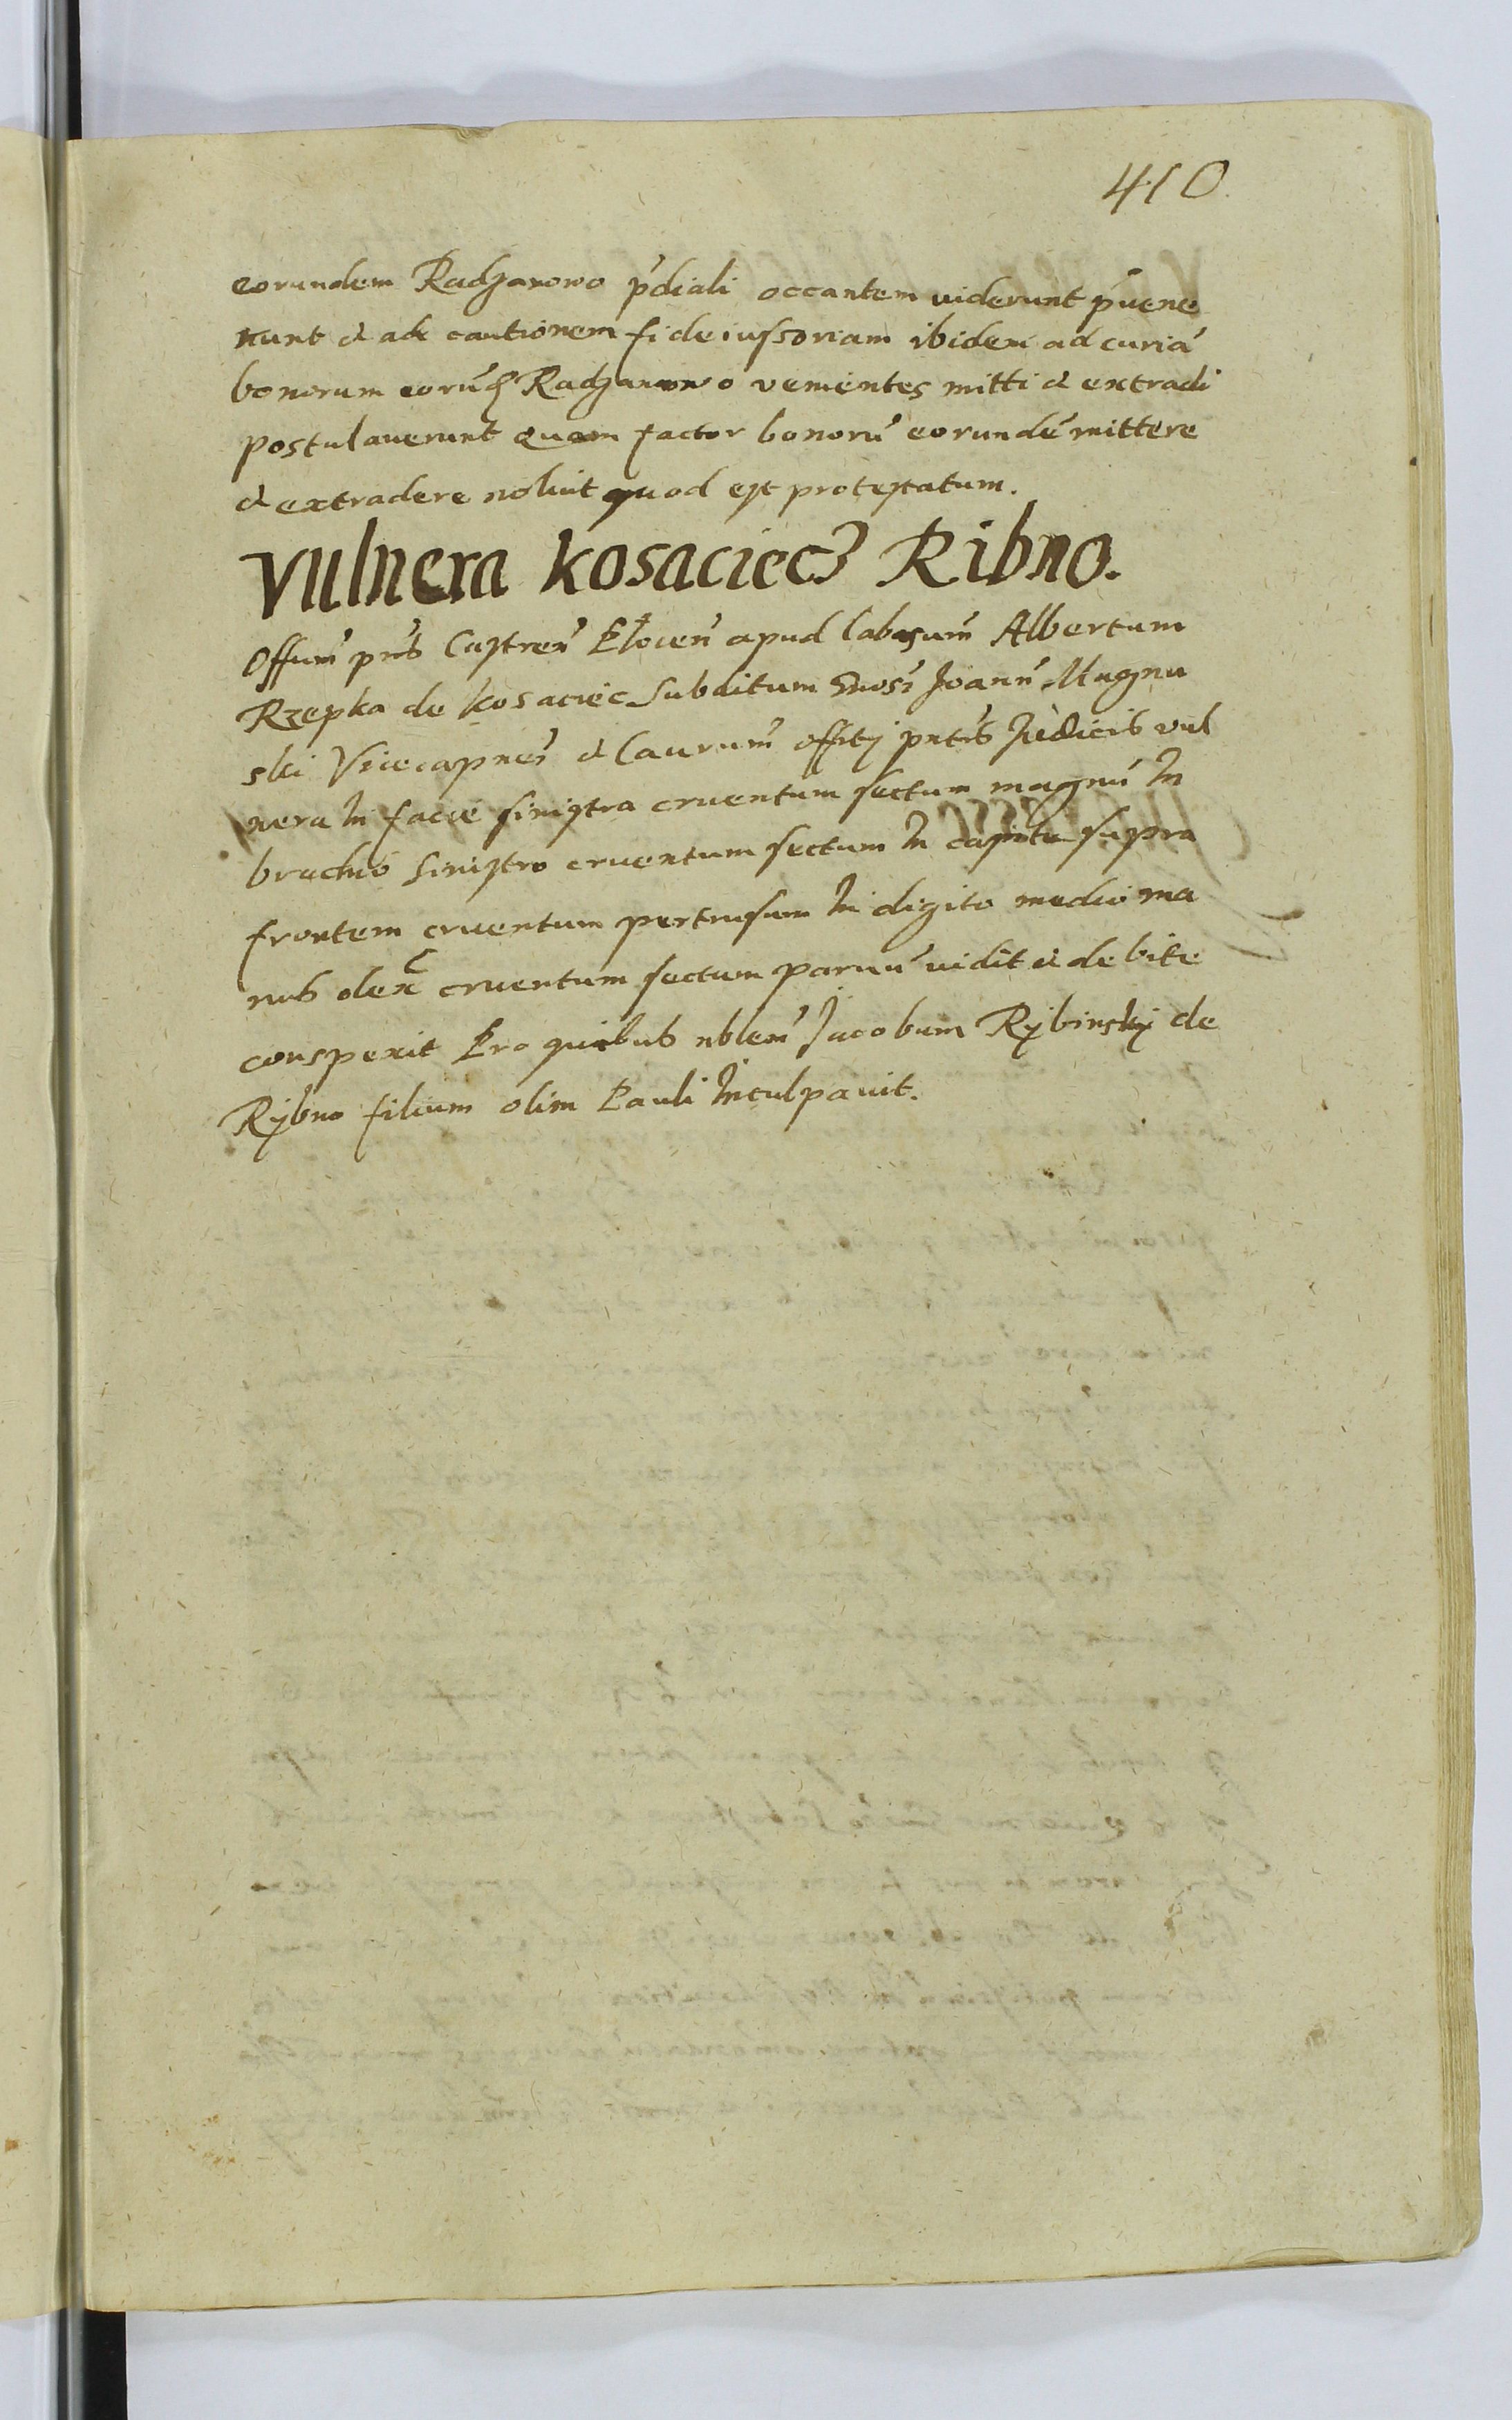 410.
eorundem Radzanowo p̃diali occantem viderunt p̃uene
runt & ad cautionem fideiussoriam ibidem ad curiã
bonorum eorũd Radzanowo venientes mitti & extradi
postulaverunt quam factor bonorũ eorundẽ mittere
& extradere noluit quod est protestatum.
Vulnera Kosaciecz Ribno.
Offum̃ pñs Castreñ Plocen̄ apud labosum̃ Albertum
Rzepka de Kosaciec subditum Gnosi Joanñ Magnu
ski Vicecapnei & Caurum̃ offitij pñtis Judicis vul
nera in facie sinistra cruentum sectum magnũ in
brachio sinistro cruentum sectum in capite supra
frontem cruentum pertusum in digito medio ma
nus dex cruentum sectum paruũ vidit & debite
conspexit Pro quibus nblem̃ Jacobum Rybinsky de
Rybno filium olim Pauli inculpavit.